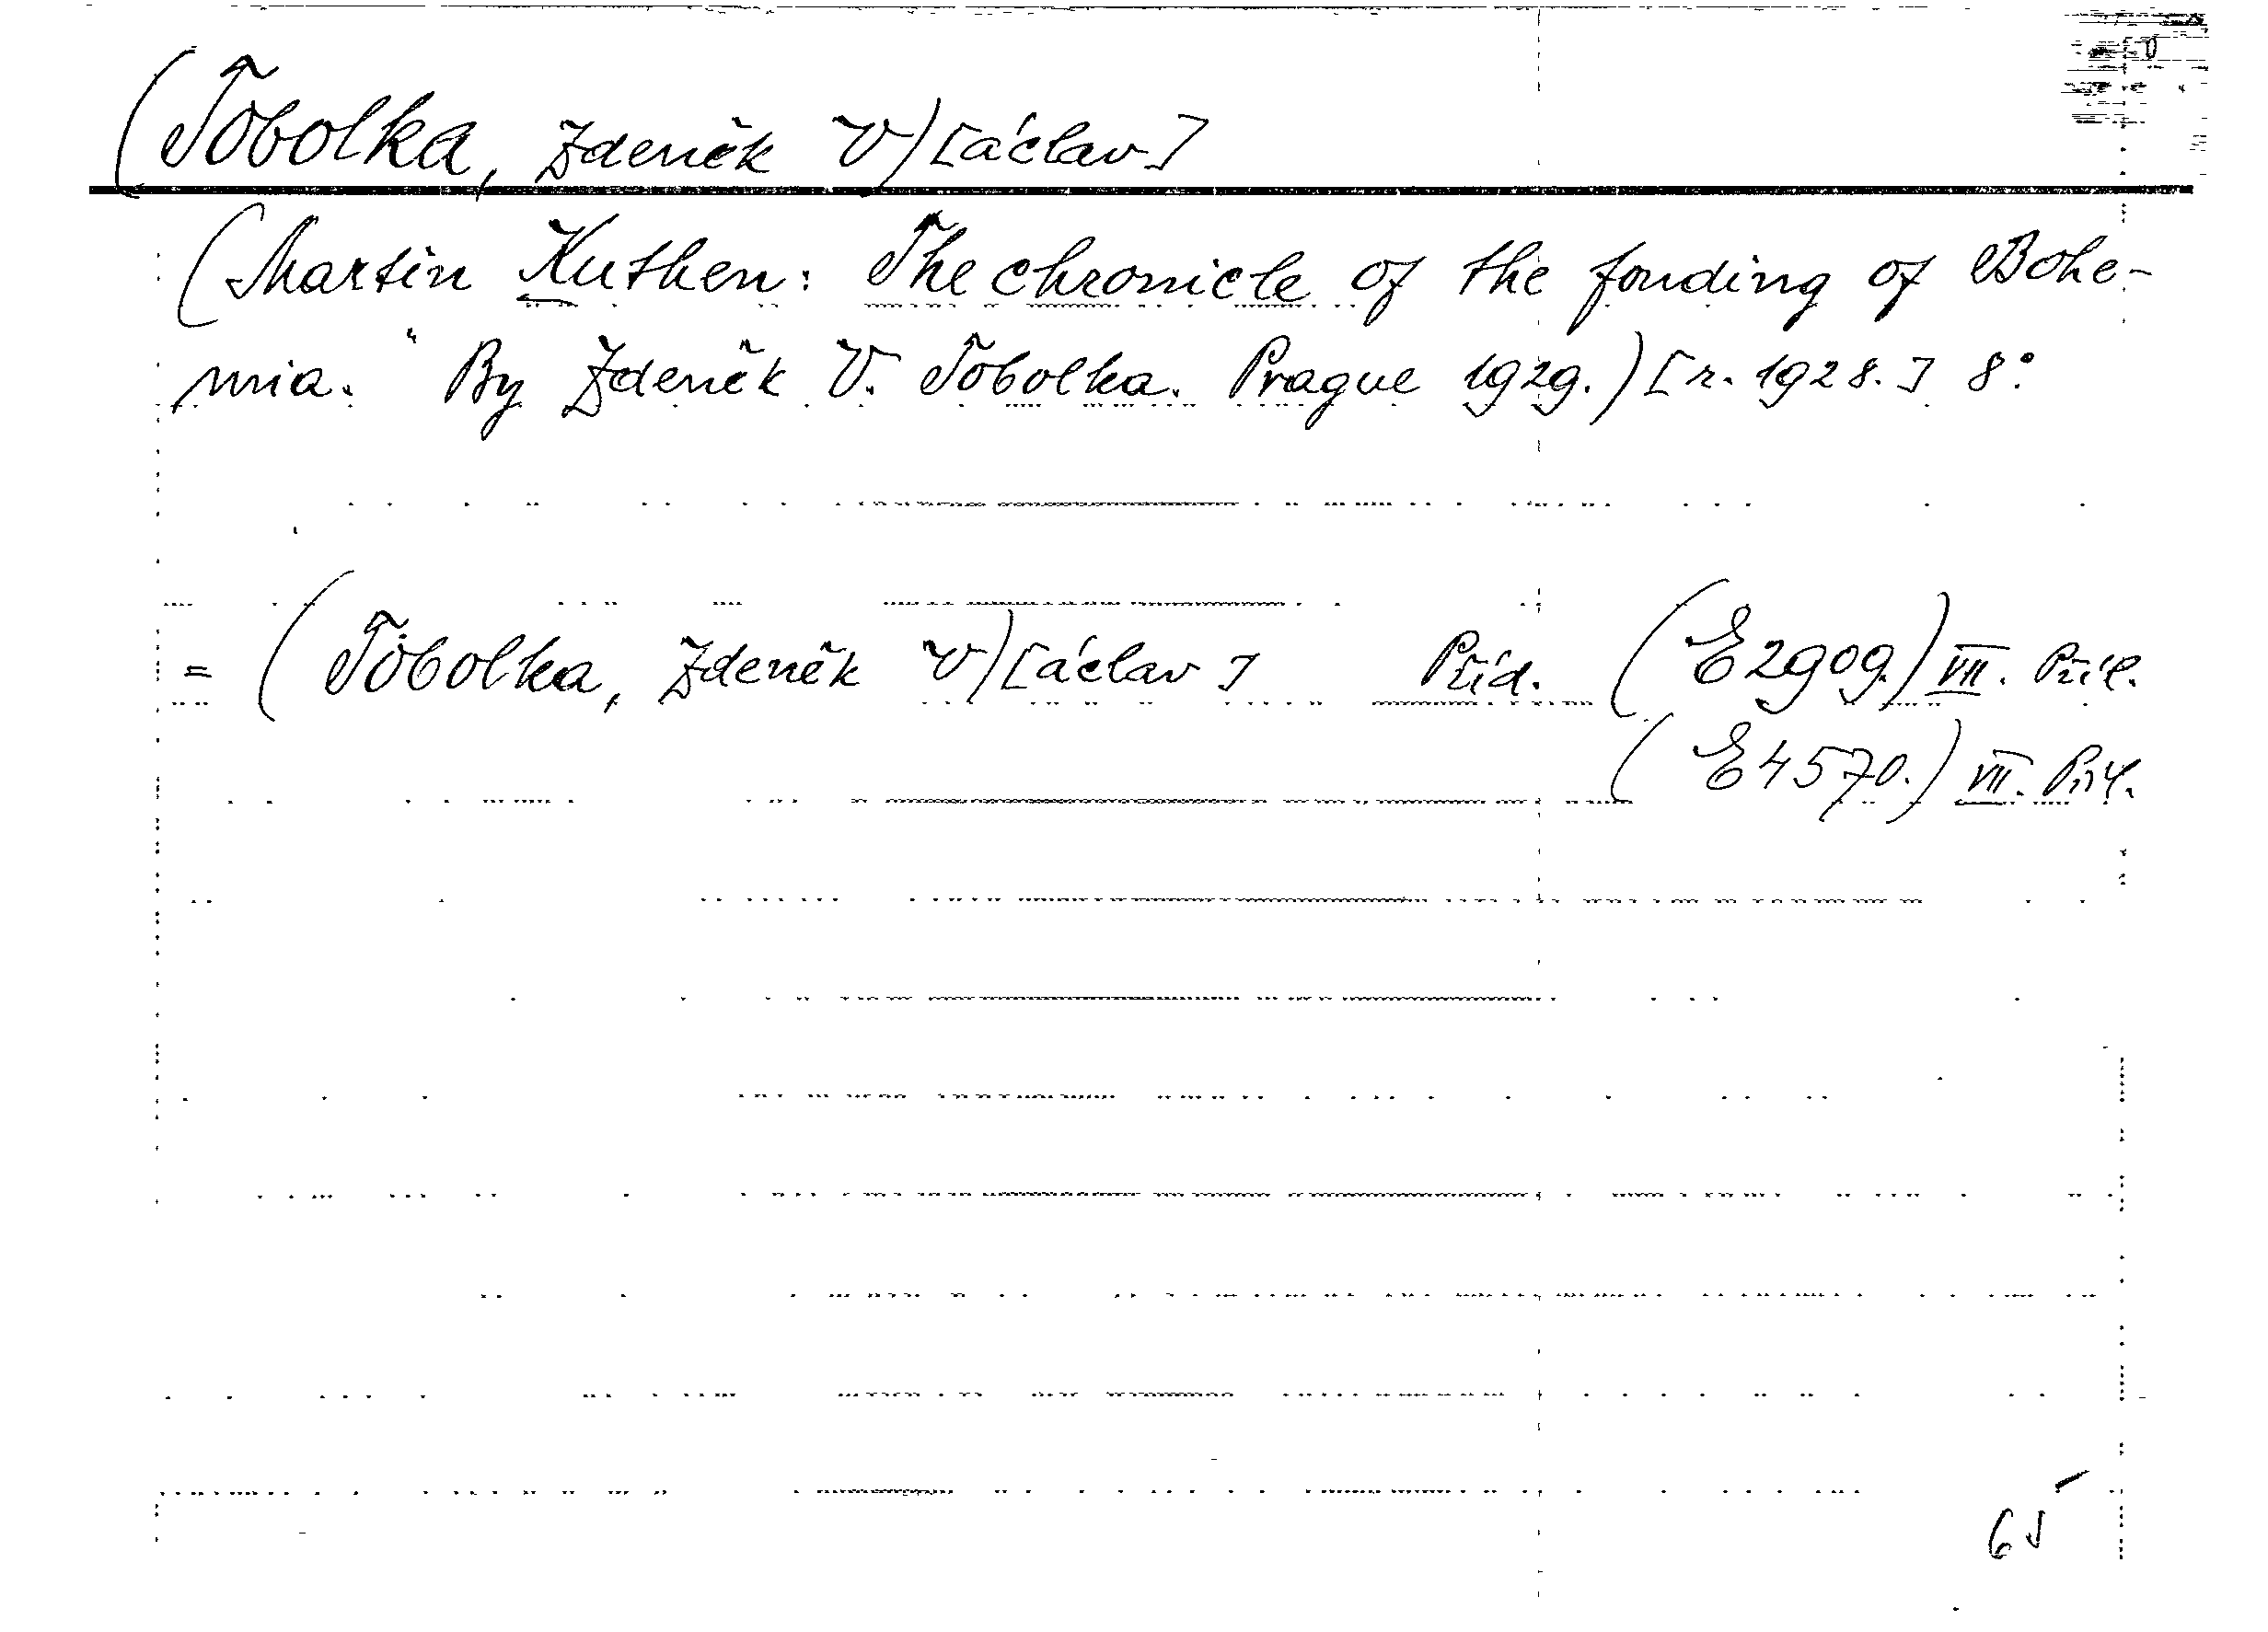 (Tobolka, Zdeněk V)[áclav]
(Martin Kuthen: The chronicle of the fonding of Bohe-
mia." By Zdeněk V. Tobolka. Prague 1929.) [r. 1928.] 8°
= (Tobolka, Zdeněk V)[áclav] Příd. (E2909.) VII. Příl.
(E4570.) VII. Příl.
65